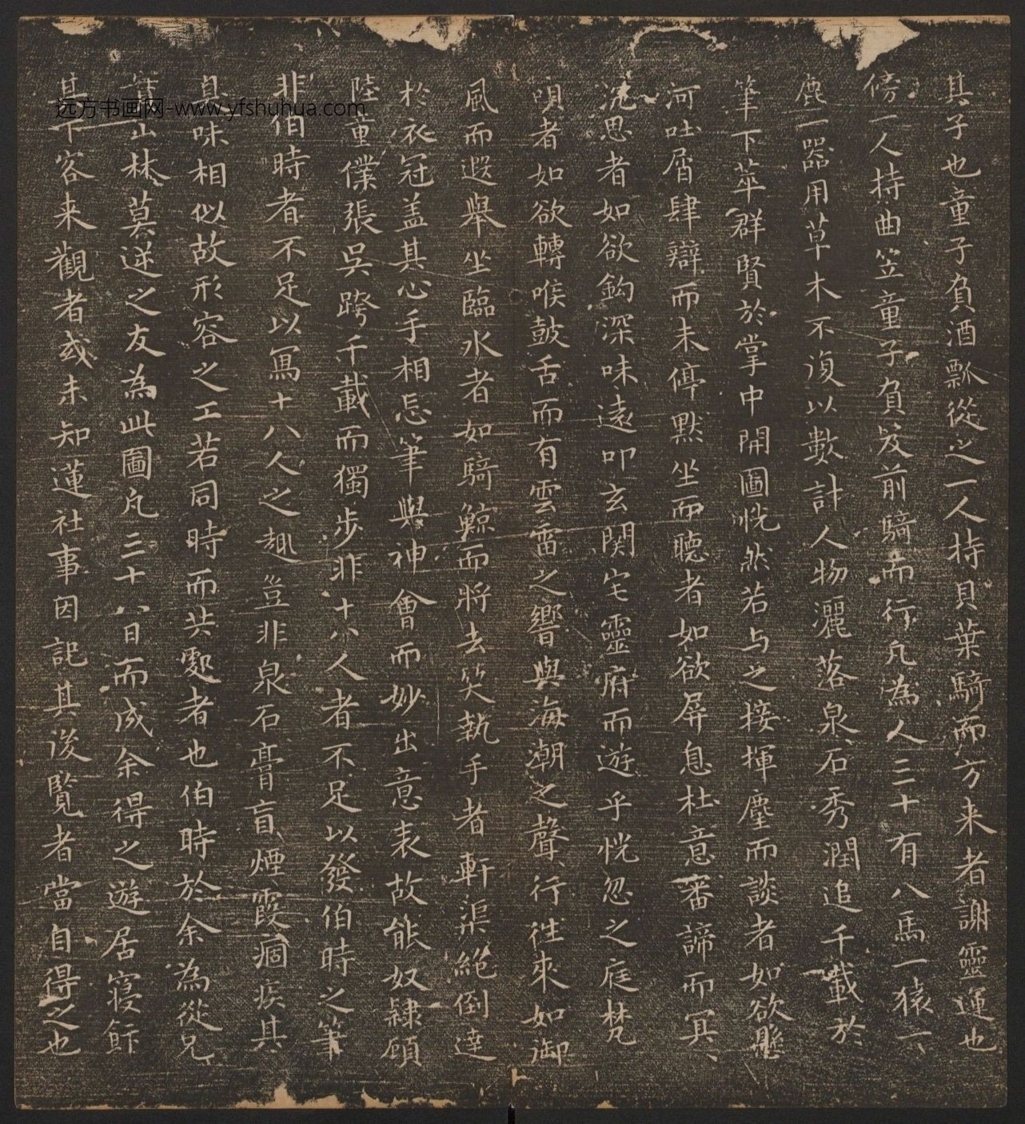 其子也童子負酒瓢從之一人持貝葉騎而方来者謝靈運也
傍一人持曲笠童子負笈前騎而行凢為人三十有八馬一猿一
鹿一器用草木不復以數計人物灑落泉石秀潤追千載於
筆下萃群賢於掌中開圖恍然若与之接揮麈而談者如欲懸
河吐屑肆辯而未停默坐而聽者如欲屏息杜意審諦而冥、
沉思者如欲鈎深味遠叩玄関宅靈府而遊乎恍忽之庭梵
唄者如欲轉喉鼓舌而有雲雷之響與海潮之聲行徃來如御
風而遐舉坐臨水者如騎鯨而將去笑執手者軒渠絕倒達
於衣冠盖其心手相忘筆與神會而妙出意表故能奴隷顧
陸童僕張吳跨千載而獨步非十八人者不足以發伯時之筆
非伯時者不足以寫十八人之趣豈非泉石膏肓煙霞痼疾其
臭味相似故形容之工若同時而共處者也伯時於余為從兄
山林莫逆之友為此圖凢三十八日而成余得之遊居寢飰
其下客来觀者或未知蓮社事因記其後覽者當自得之也
远方书画网-www.yfshuhua.com